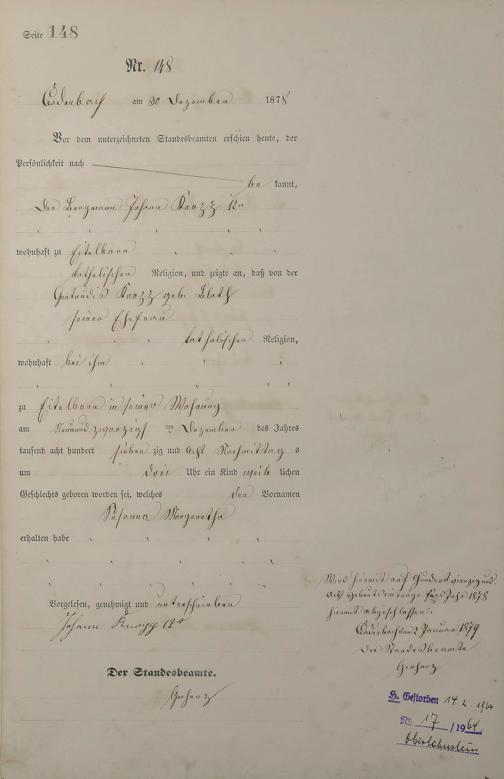 Seite 148
Nr. 148
Cadenbach am 30 Dezember 1878
Vor dem unterzeichneten Standesbeamten erschien heute, der
Persönlichkeit nach
be kannt,
Der Bergmann Johann
wohnhaft zu Eitelborn
katholischen Religion, und zeigte an, daß von der
geb.
seiner Ehefrau
katholischen Religion,
wohnhaft bei ihm
zu Eitelborn in seiner Wohnung
am Neunundzwanzigs ten Dezember des Jahres
tausend acht hundert sieben zig und acht Nachmittag s
um drei Uhr ein Kind weib lichen
Geschlechts geboren worden sei, welches den Vornamen
Susanna Margaretha
erhalten habe
Vorgelesen, genehmigt und unterschrieben
Johann
Der Standesbeamte.
Wird hiermit auf Hundert vierzig und
acht Geburtseinträge fürs Jahr 1878
hiermit abgeschlossen.
Cadenbach Januar 1879
Der Standesbeamte
H. Gestorben 14.2.
Nr. 17 /1964
Oberlahnstein